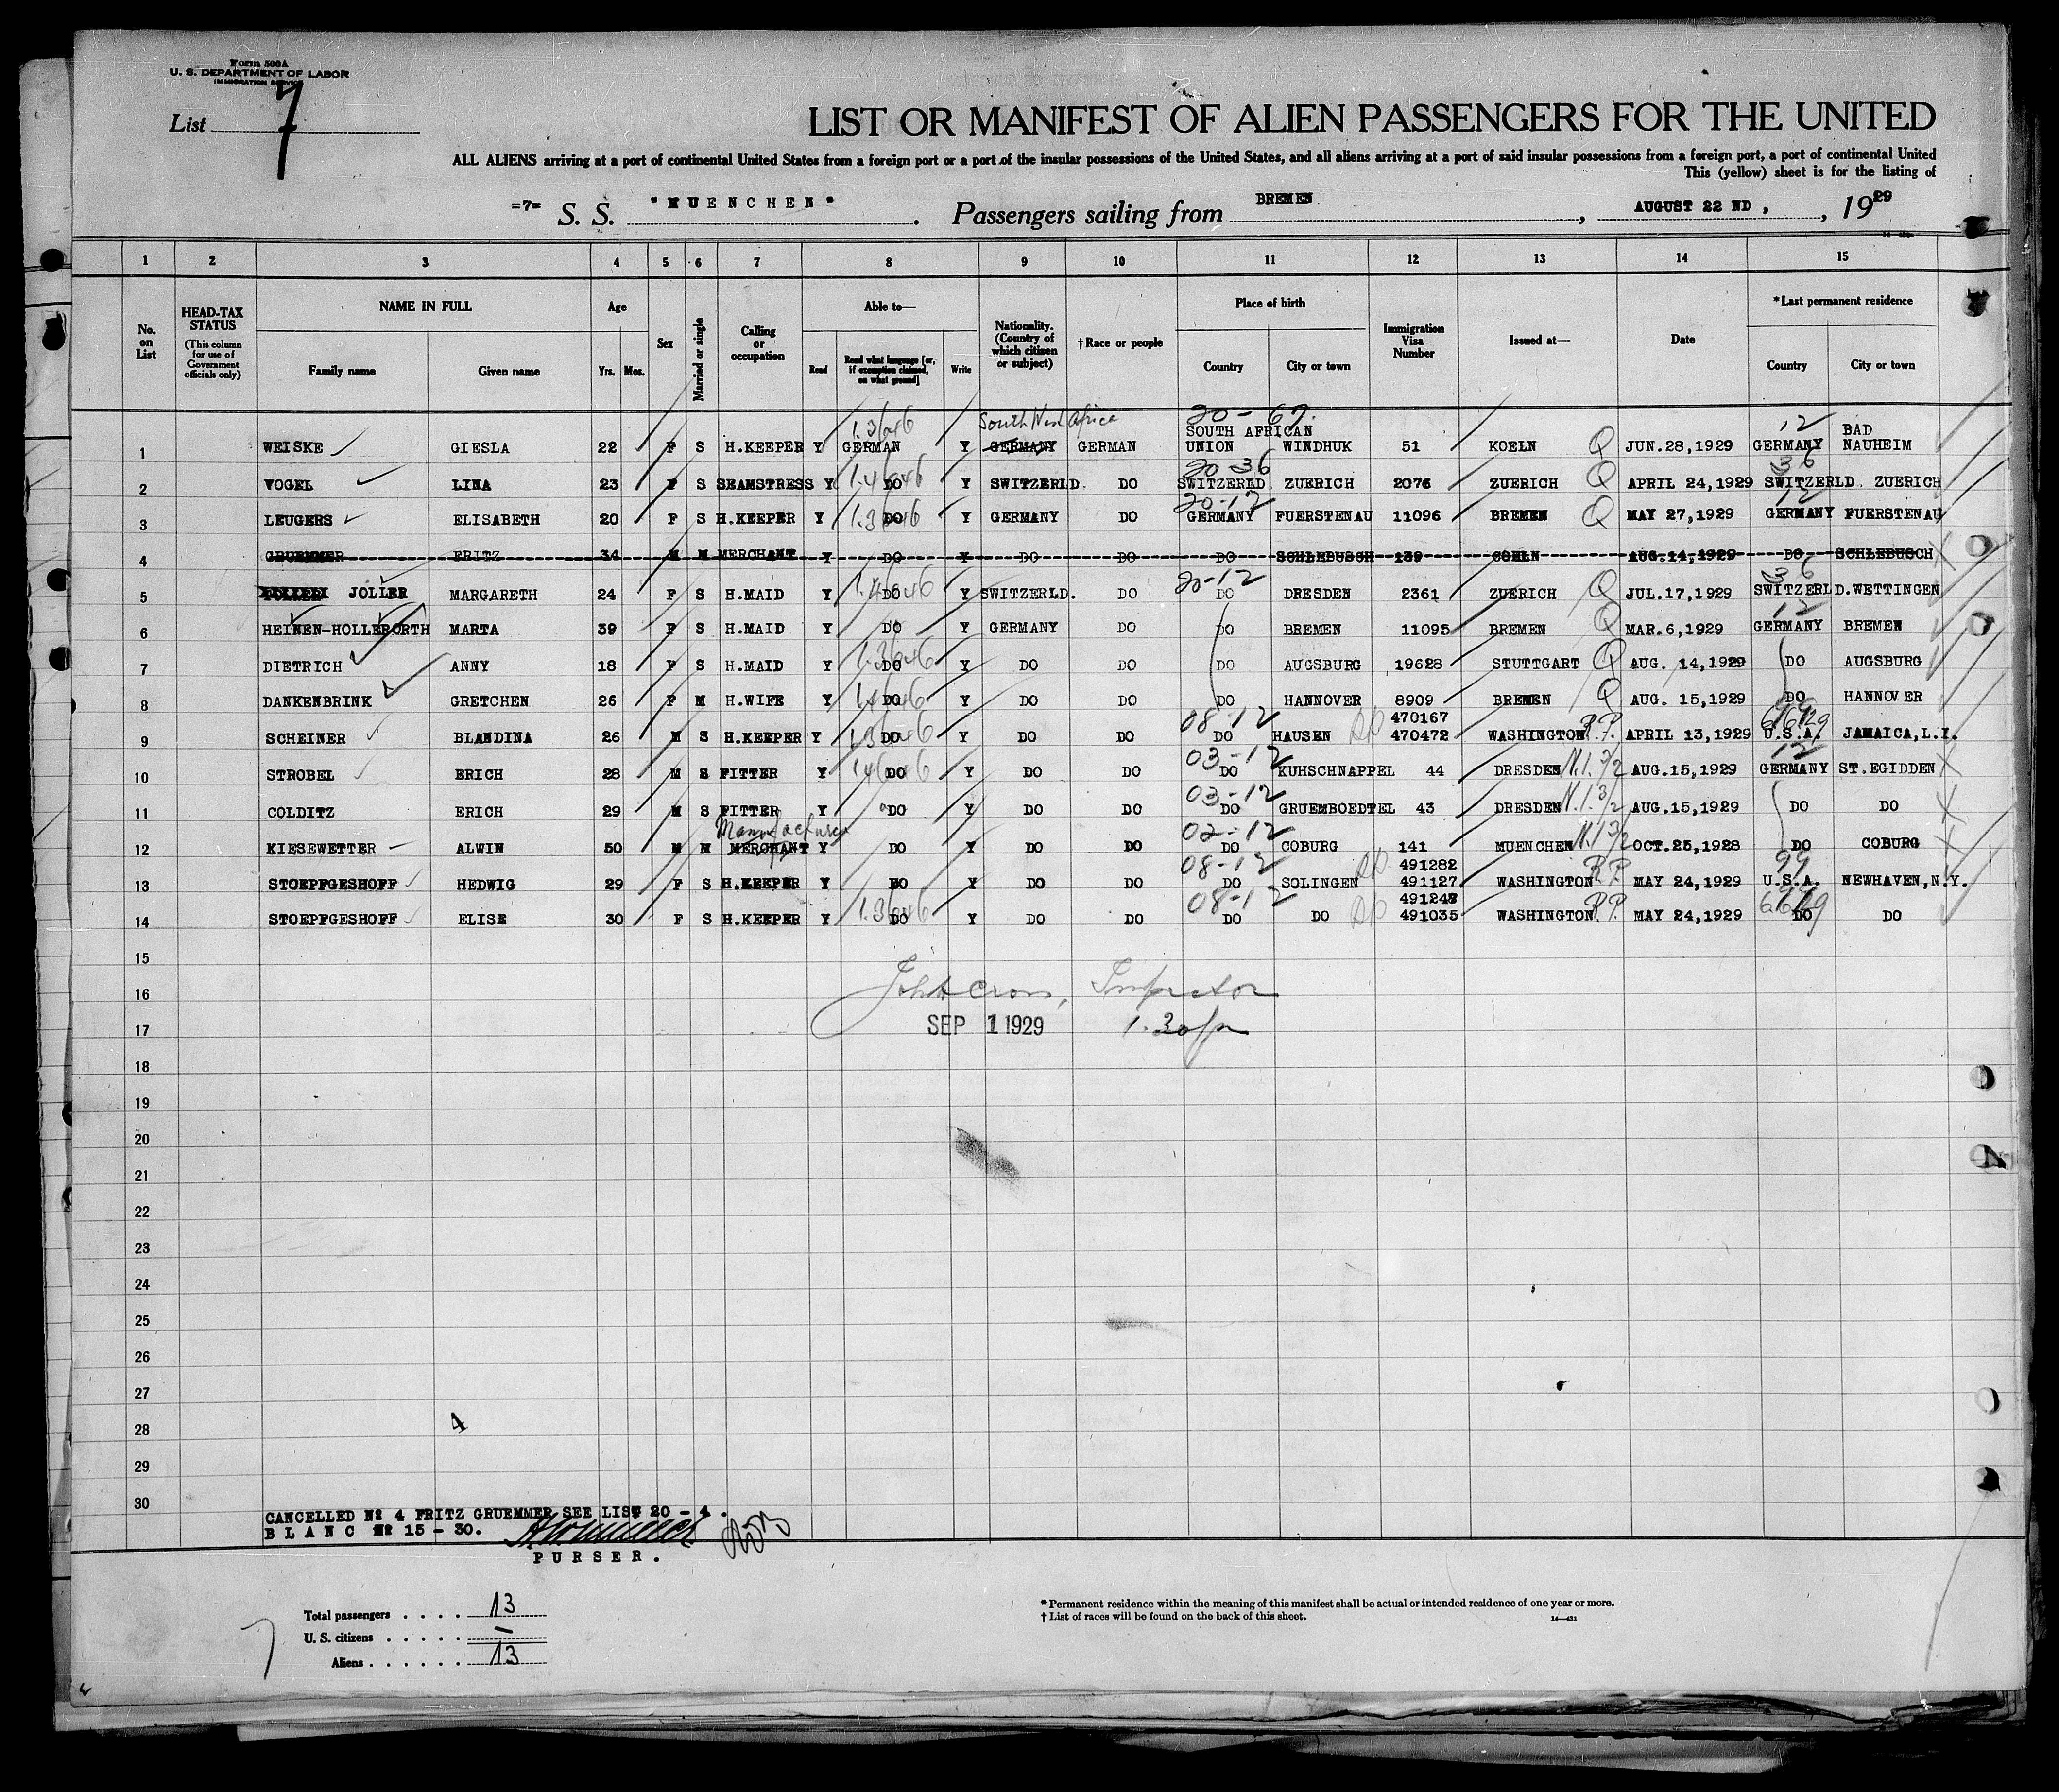 Form 500A
U. S. DEPARTMENT OF LABOR
IMMIGRATION SERVICE
List 7
LIST OR MANIFEST OF ALIEN PASSENGERS FOR THE UNITED
ALL ALIENS arriving at a port of continental United States from a foreign port or a port of the insular possessions of the United States, and all aliens arriving at a port of said insular possessions from a foreign port, a port of continental United
This (yellow) sheet is for the listing of
=7= S. S. "MUENCHEN". Passengers sailing from BREMEN, AUGUST 22 ND, , 1929
1 2 3 4 5 6 7 8 9 10 11 12 13 14 15
No. on List HEAD-TAX STATUS (This column for use of Government officials only) NAME IN FULL Family name Given name Age Yrs. Mos. Sex Married or single Calling or occupation Able to— Read Read what language [or, if exemption claimed, on what ground] Write Nationality. (Country of which citizen or subject) †Race or people Place of birth Country City or town Immigration Visa Number Issued at— Date *Last permanent residence Country City or town
South West Africa 20-67. 12
1 WEISKE GIESLA 22 F S H.KEEPER Y GERMAN Y GERMANY GERMAN SOUTH AFRICAN UNION WINDHUK 51 KOELN Q JUN.28,1929 GERMANY BAD NAUHEIM
20-36 36
2 VOGEL LINA 23 F S SEAMSTRESS Y DO Y SWITZERLD. DO SWITZERLD ZUERICH 2076 ZUERICH Q APRIL 24,1929 SWITZERLD. ZUERICH
20-12 12
3 LEUGERS ELISABETH 20 F S H.KEEPER Y DO Y GERMANY DO GERMANY FUERSTENAU 11096 BREMEN Q MAY 27,1929 GERMANY FUERSTENAU
4 GRUEMMER FRITZ 34 M M MERCHANT Y DO Y DO DO DO SCHLEBUSCH 139 COELN AUG.14,1929 DO SCHLEBUSCH
20-12 36
5 JOLLER MARGARETH 24 F S H.MAID Y DO Y SWITZERLD. DO DO DRESDEN 2361 ZUERICH Q JUL.17,1929 SWITZERLD.WETTINGEN
12
6 HEINEN-HOLLERORTH MARTA 39 F S H.MAID Y DO Y GERMANY DO DO BREMEN 11095 BREMEN Q MAR.6,1929 GERMANY BREMEN
7 DIETRICH ANNY 18 F S H.MAID Y DO Y DO DO DO AUGSBURG 19628 STUTTGART Q AUG. 14,1929 DO AUGSBURG
8 DANKENBRINK GRETCHEN 26 F M H.WIFE Y DO Y DO DO DO HANNOVER 8909 BREMEN Q AUG. 15,1929 DO HANNOVER
08-12 470167
9 SCHEINER BLANDINA 26 M S H.KEEPER Y DO Y DO DO DO HAUSEN 470472 WASHINGTON R.P. APRIL 13,1929 U.S.A. JAMAICA,L.I.
03-12 12
10 STROBEL ERICH 28 M S FITTER Y DO Y DO DO DO KUHSCHNAPPEL 44 DRESDEN AUG.15,1929 GERMANY ST.EGIDDEN
03-12
11 COLDITZ ERICH 29 M S FITTER Y DO Y DO DO DO GRUEMBOEDTEL 43 DRESDEN AUG.15,1929 DO DO
Manufacturer 02-12
12 KIESEWETTER ALWIN 50 M M MERCHANT Y DO Y DO DO DO COBURG 141 MUENCHEN OCT.25,1928 DO COBURG
08-12 491282 99
13 STOEPFGESHOFF HEDWIG 29 F S H.KEEPER Y DO Y DO DO DO SOLINGEN 491127 WASHINGTON R.P. MAY 24,1929 U.S.A. NEWHAVEN,N.Y.
08-12 491248
14 STOEPFGESHOFF ELISE 30 F S H.KEEPER Y DO Y DO DO DO DO 491035 WASHINGTON R.P. MAY 24,1929 DO DO
15
16 Inspector
17 SEP 1 1929 1.30 pm
18
19
20
21
22
23
24
25
26
27
28 4
29
30
CANCELLED Nº 4 FRITZ GRUEMMER SEE LIST 20 - 4 .
BLANC Nº 15 - 30.
PURSER.
Total passengers . . . . 13
U. S. citizens . . . . . —
Aliens . . . . . . 13
7
* Permanent residence within the meaning of this manifest shall be actual or intended residence of one year or more.
† List of races will be found on the back of this sheet.
14—431